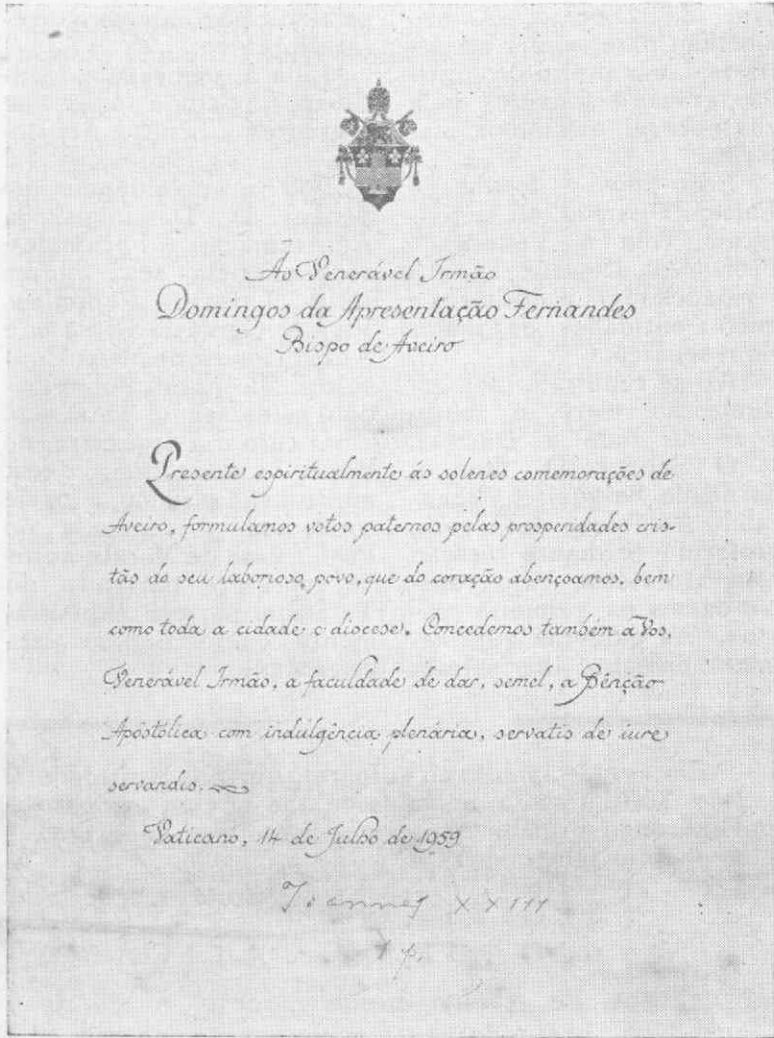 Ao Venerável Irmão
Domingos da Apresentação Fernandes
Bispo de Aveiro
Presente espiritualmente ás solenes comemorações de
Aveiro, formulamos votos paternos pelas prosperidades cris-
tãs do seu laborioso povo, que do coração abençoamos, bem
como toda a cidade e diocese. Concedemos também a Vos,
Venerável Irmão, a faculdade de dar, semel, a Bênção
Apóstólica com indulgência plenária, servatis de iure
servandis.
Vaticano, 14 de Julho de 1959
Ioannes XXIII